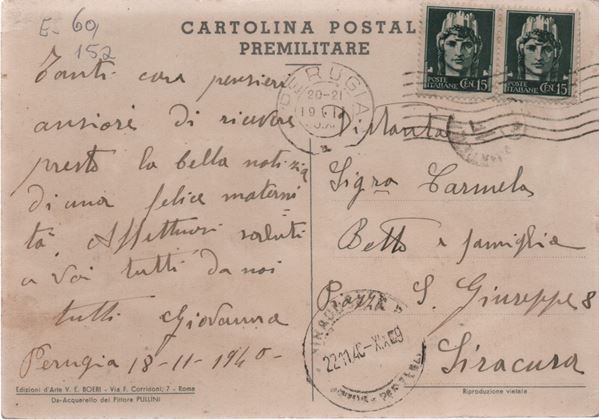 E- 60,
152
CARTOLINA POSTALE
PREMILITARE
POSTE ITALIANE CEN. 15
POSTE ITALIANE CEN. 15
PERUGIA
20-21
19 XI
Tanti cari pensieri
ansiosi di ricevere
presto la bella notizia
di una felice materni
tà. Affettuosi saluti
a voi tutti da noi
tutti Giovanna
Perugia 18-11-1940-
Distinta
Sigra Carmela
Betto e famiglia
Piazza S. Giuseppe 8
Siracusa
22.11.40-XIX
Edizioni d'Arte V. E. BOERI - Via F. Corridoni, 7 - Roma
Da-Acquarello del Pittore PULLINI
Riproduzione vietata